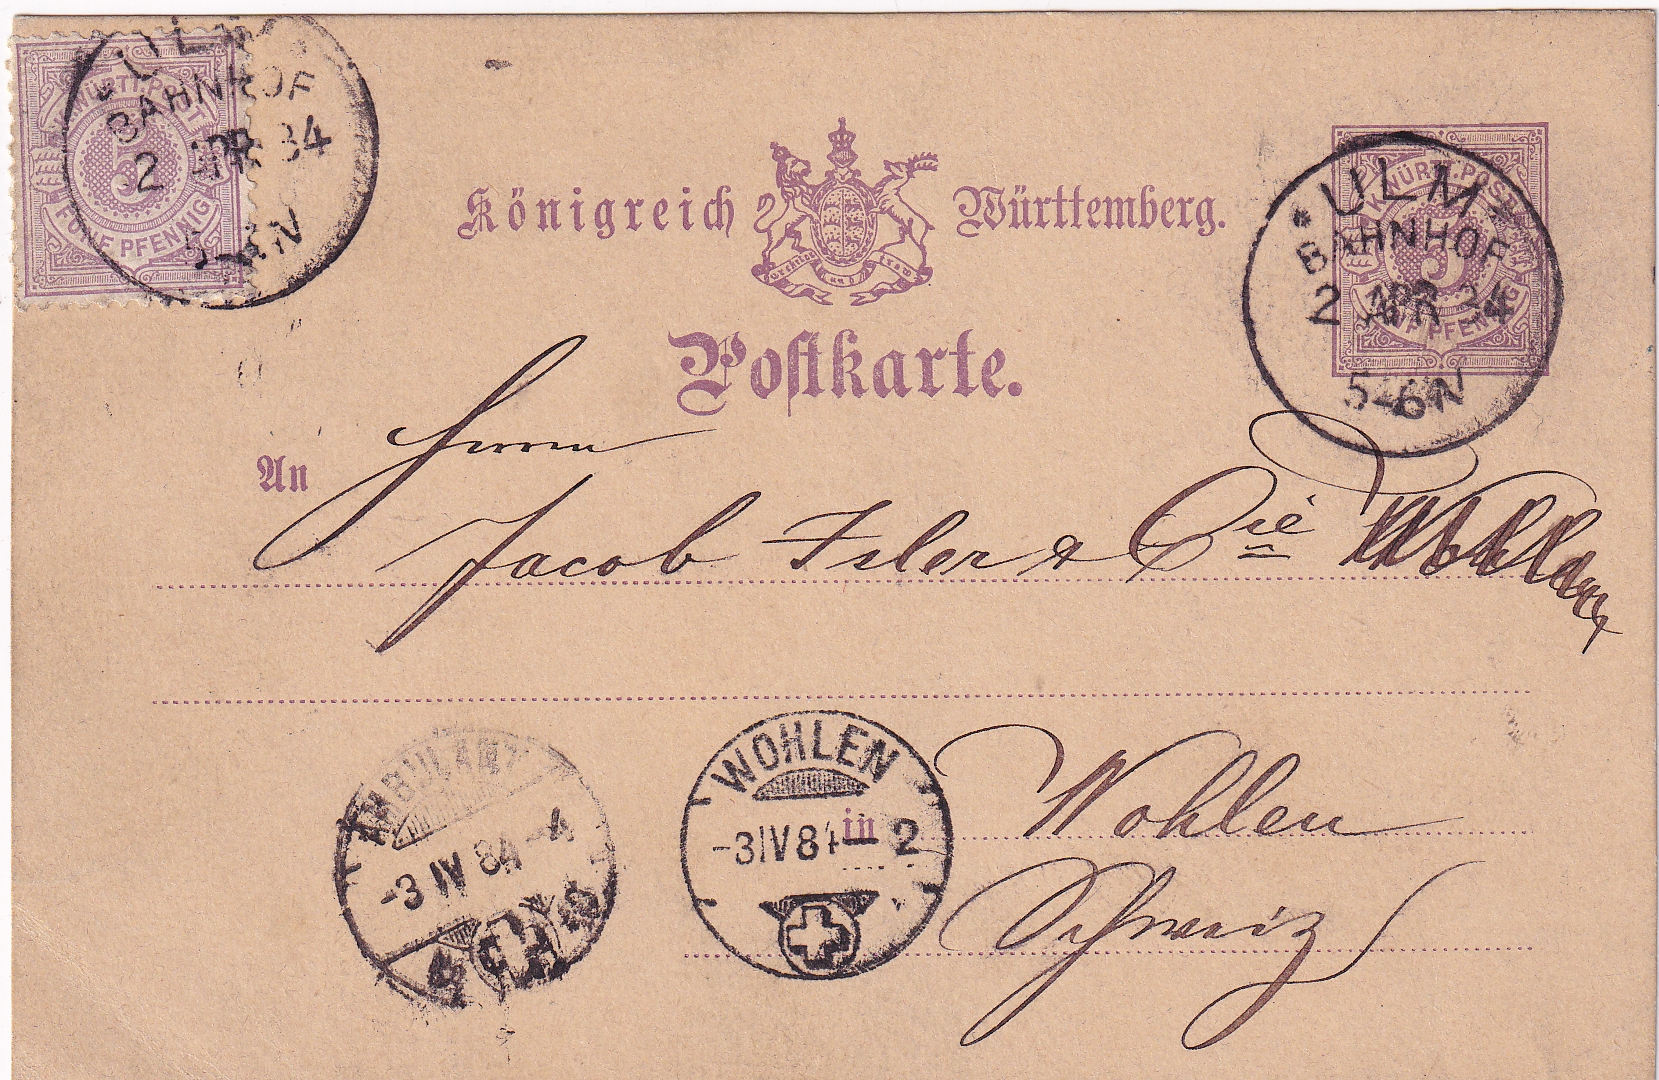 K. WÜRTT. POST
5
FÜNF PFENNIG
ULM
BAHNHOF
2 APR 84
Königreich Württemberg.
furchtlos und trew
Postkarte.
K. WÜRTT. POST
5
FÜNF PFENNIG
ULM
BAHNHOF
2 APR 84
5-6 N
An Herrn
Jacob Isler & Cie
AMBULANT
-3 IV 84 -4
WOHLEN
-3 IV 84 2
in Wohlen
Schweiz